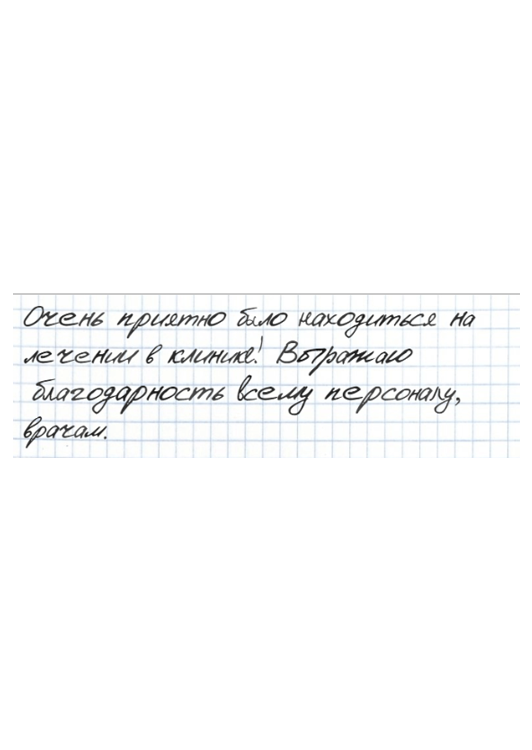 Очень приятно было находиться на
лечении в клинике! Выражаю
благодарность всему персоналу,
врачам.